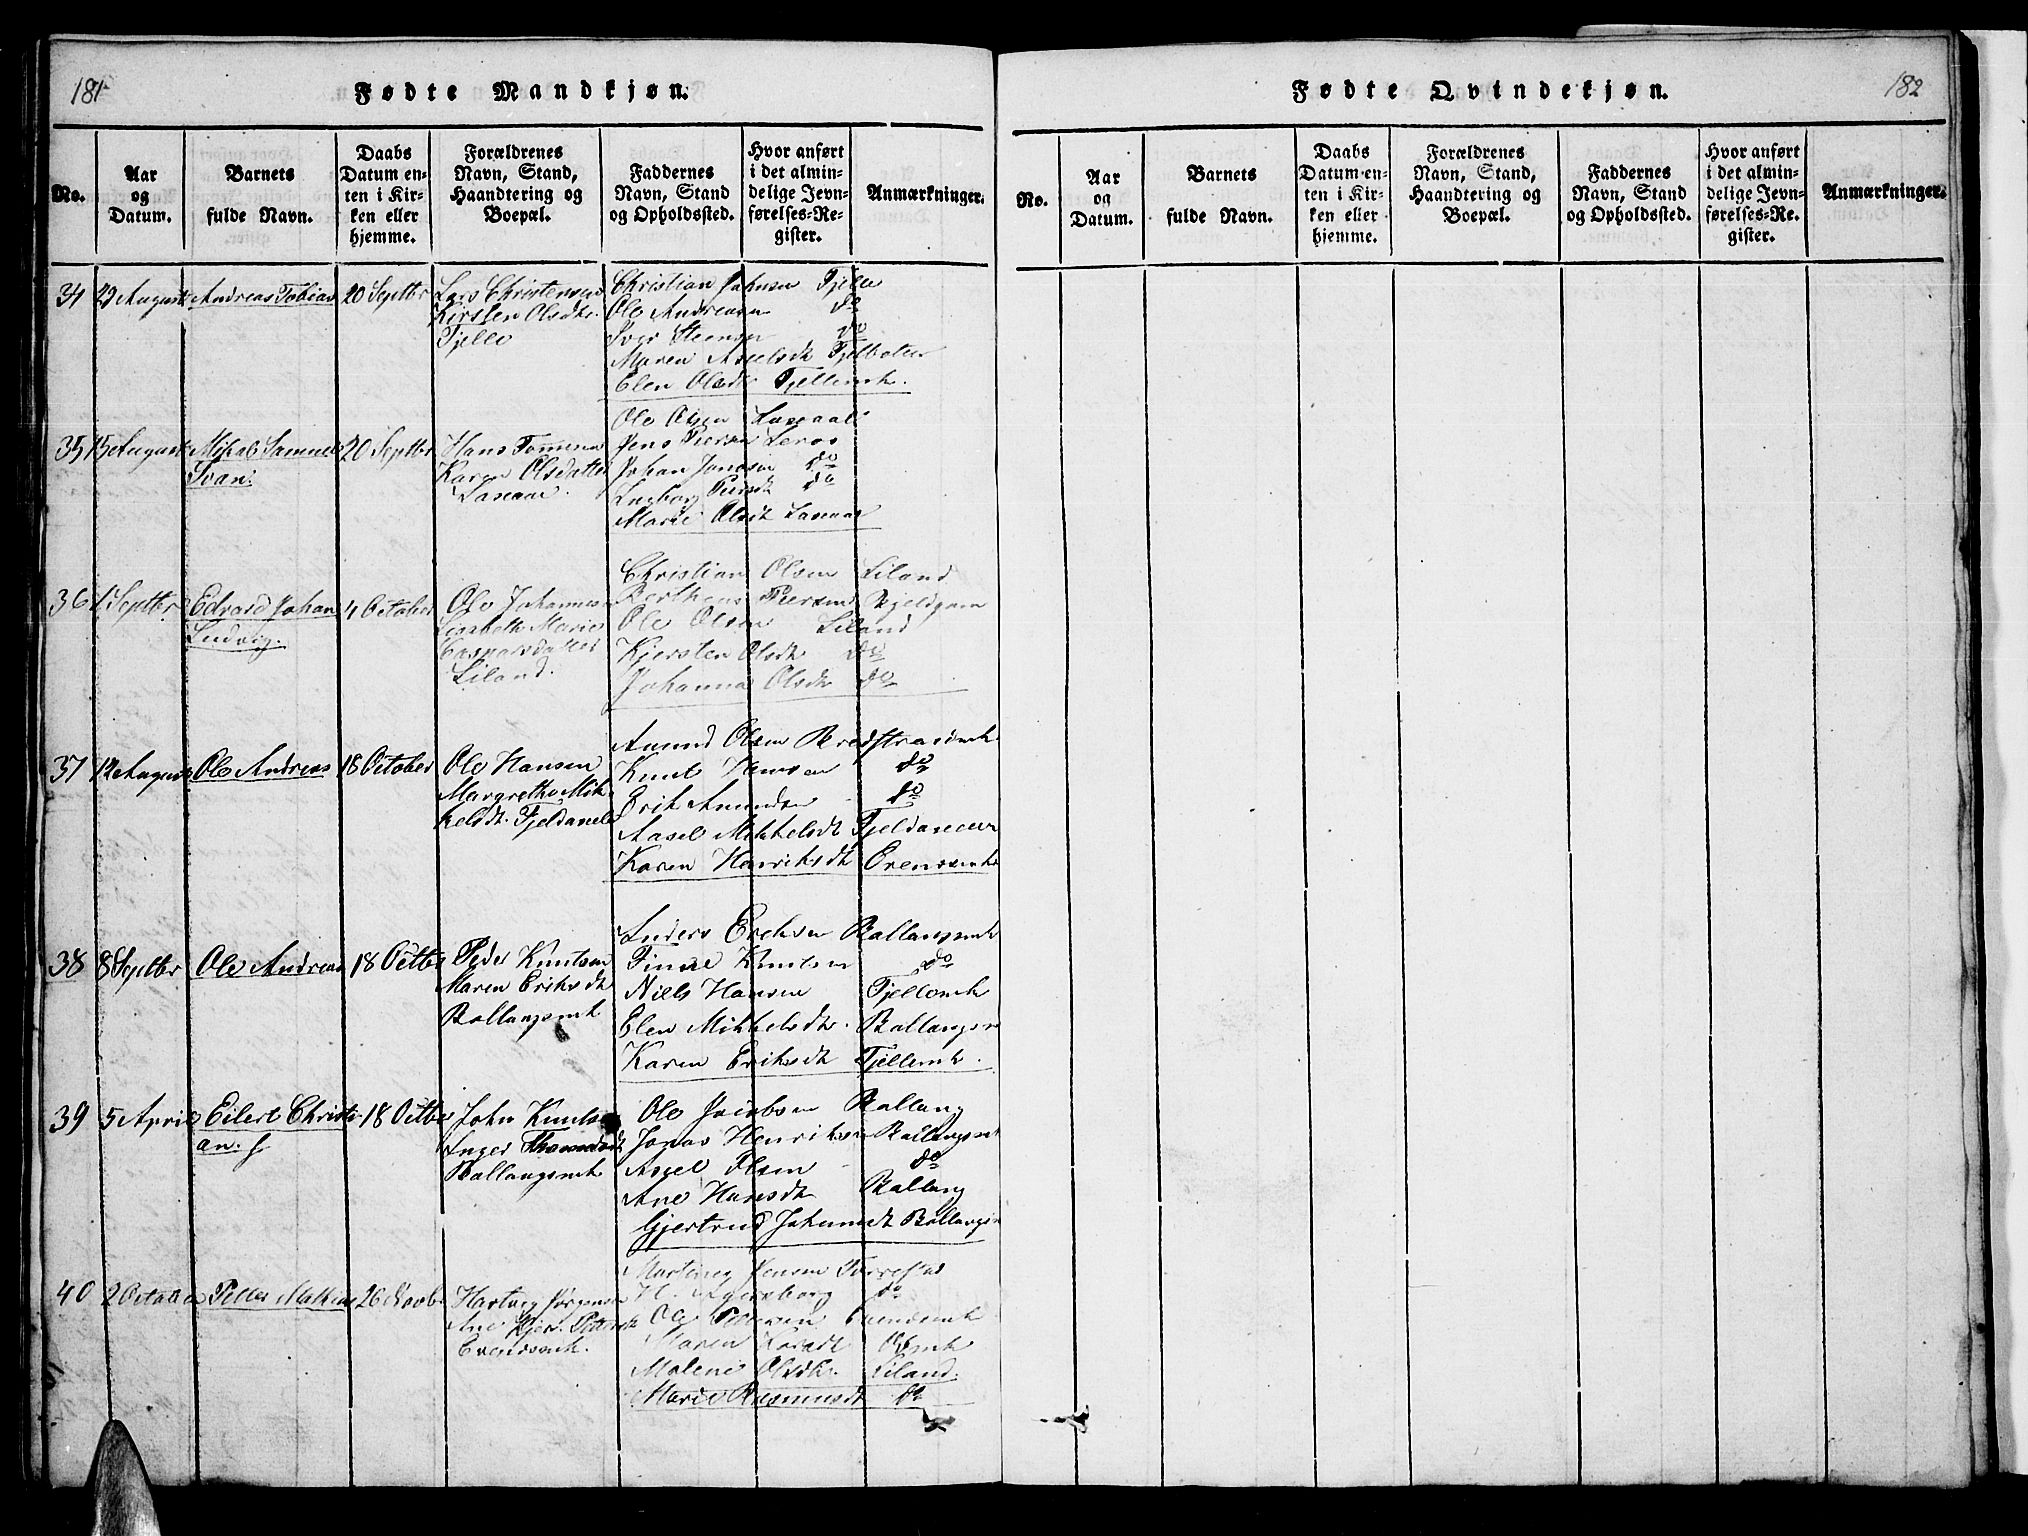 181
Fødte Mandkjøn.
No.
Aar og Datum.
Barnets fulde Navn.
Daabs Datum enten i Kirken eller hjemme.
Forældrenes Navn, Stand, Haandtering og Boepæl.
Faddernes Navn, Stand og Opholdssted.
Hvor anført i det almindelige Jevnførelses-Register.
Anmærkninger.
34 29 August Andreas Tobias 20 Septbr
Lars Christensen
Kirsten Olsdtr.
Fjelle
Christian Johnsen Fjelle
Ole Andreasen do
Iver Steensen do
Maren Axelsdt Fjelbotn
Elen Olsdt Fjellemk.
35 15 August Mikal Samuel 20 Septbr
Ivan.
Hans Tommesen
Karen Olsdatter
Laxaae.
Ole Olsen Laxaae
Jens Piersen Lenos
Johan Jonasen do
Ingborg Piersdt do
Marie Olsdt Laxaae
36 1 Septbr Edvard Johan 4 October
Ludvig.
Ole Johannesen
Lisabeth Marie
Caspersdatter
Liland.
Christian Olsen Liland
Berthens Piersen
Ole Olsen Liland
Kjersten Olsdtr do
Johanna Olsdtr do
37 12 August Ole Andreas 18 October
Ole Hansen
Margrethe Mik-
kelsdt. Fjeldanel
Amund Olsen Bredstrandmk
Knut Hansen do
Erik Amundsen do
Aasel Mikkelsdt
Karen Henriksdt
38 8 Septbr Ole Andreas 18 Octbr
Peder Knutsen
Maren Eriksdt
Ballangsmk
Anders Ereksen Ballangsmk
Knutsen do
Niels Hansen Fjellemk
Elen Mikkelsdtr. Ballangsm
Karen Eriksdt Fjellemk.
39 5 April Eilert Christi- 18 Octbr
an.
John Knutsen
Inger
Ballangsmk
Ole Jacobsen Ballang
Jonas Henriksen Ballangsmk
Axel Olsen do
Ane Hansdt Ballang
Gjertrud Johansdt Ballangsm
40 2 October Petter Mathias 26 Novb.
Hartvig Jørgensen
Ane Kjer. Pettersdt
Evendsmk.
Martinus Jensen
H. Agersborg do
Ole Pedersen Evendsmk
Maren
Malene Olsdtr. Liland.
Marie Rasmusdt do
182
Fødte Qvindekjøn.
No.
Aar og Datum.
Barnets fulde Navn.
Daabs Datum enten i Kirken eller hjemme.
Forældrenes Navn, Stand, Haandtering og Boepæl.
Faddernes Navn, Stand og Opholdssted.
Hvor anført i det almindelige Jevnførelses-Re. gister.
Anmærkninger.